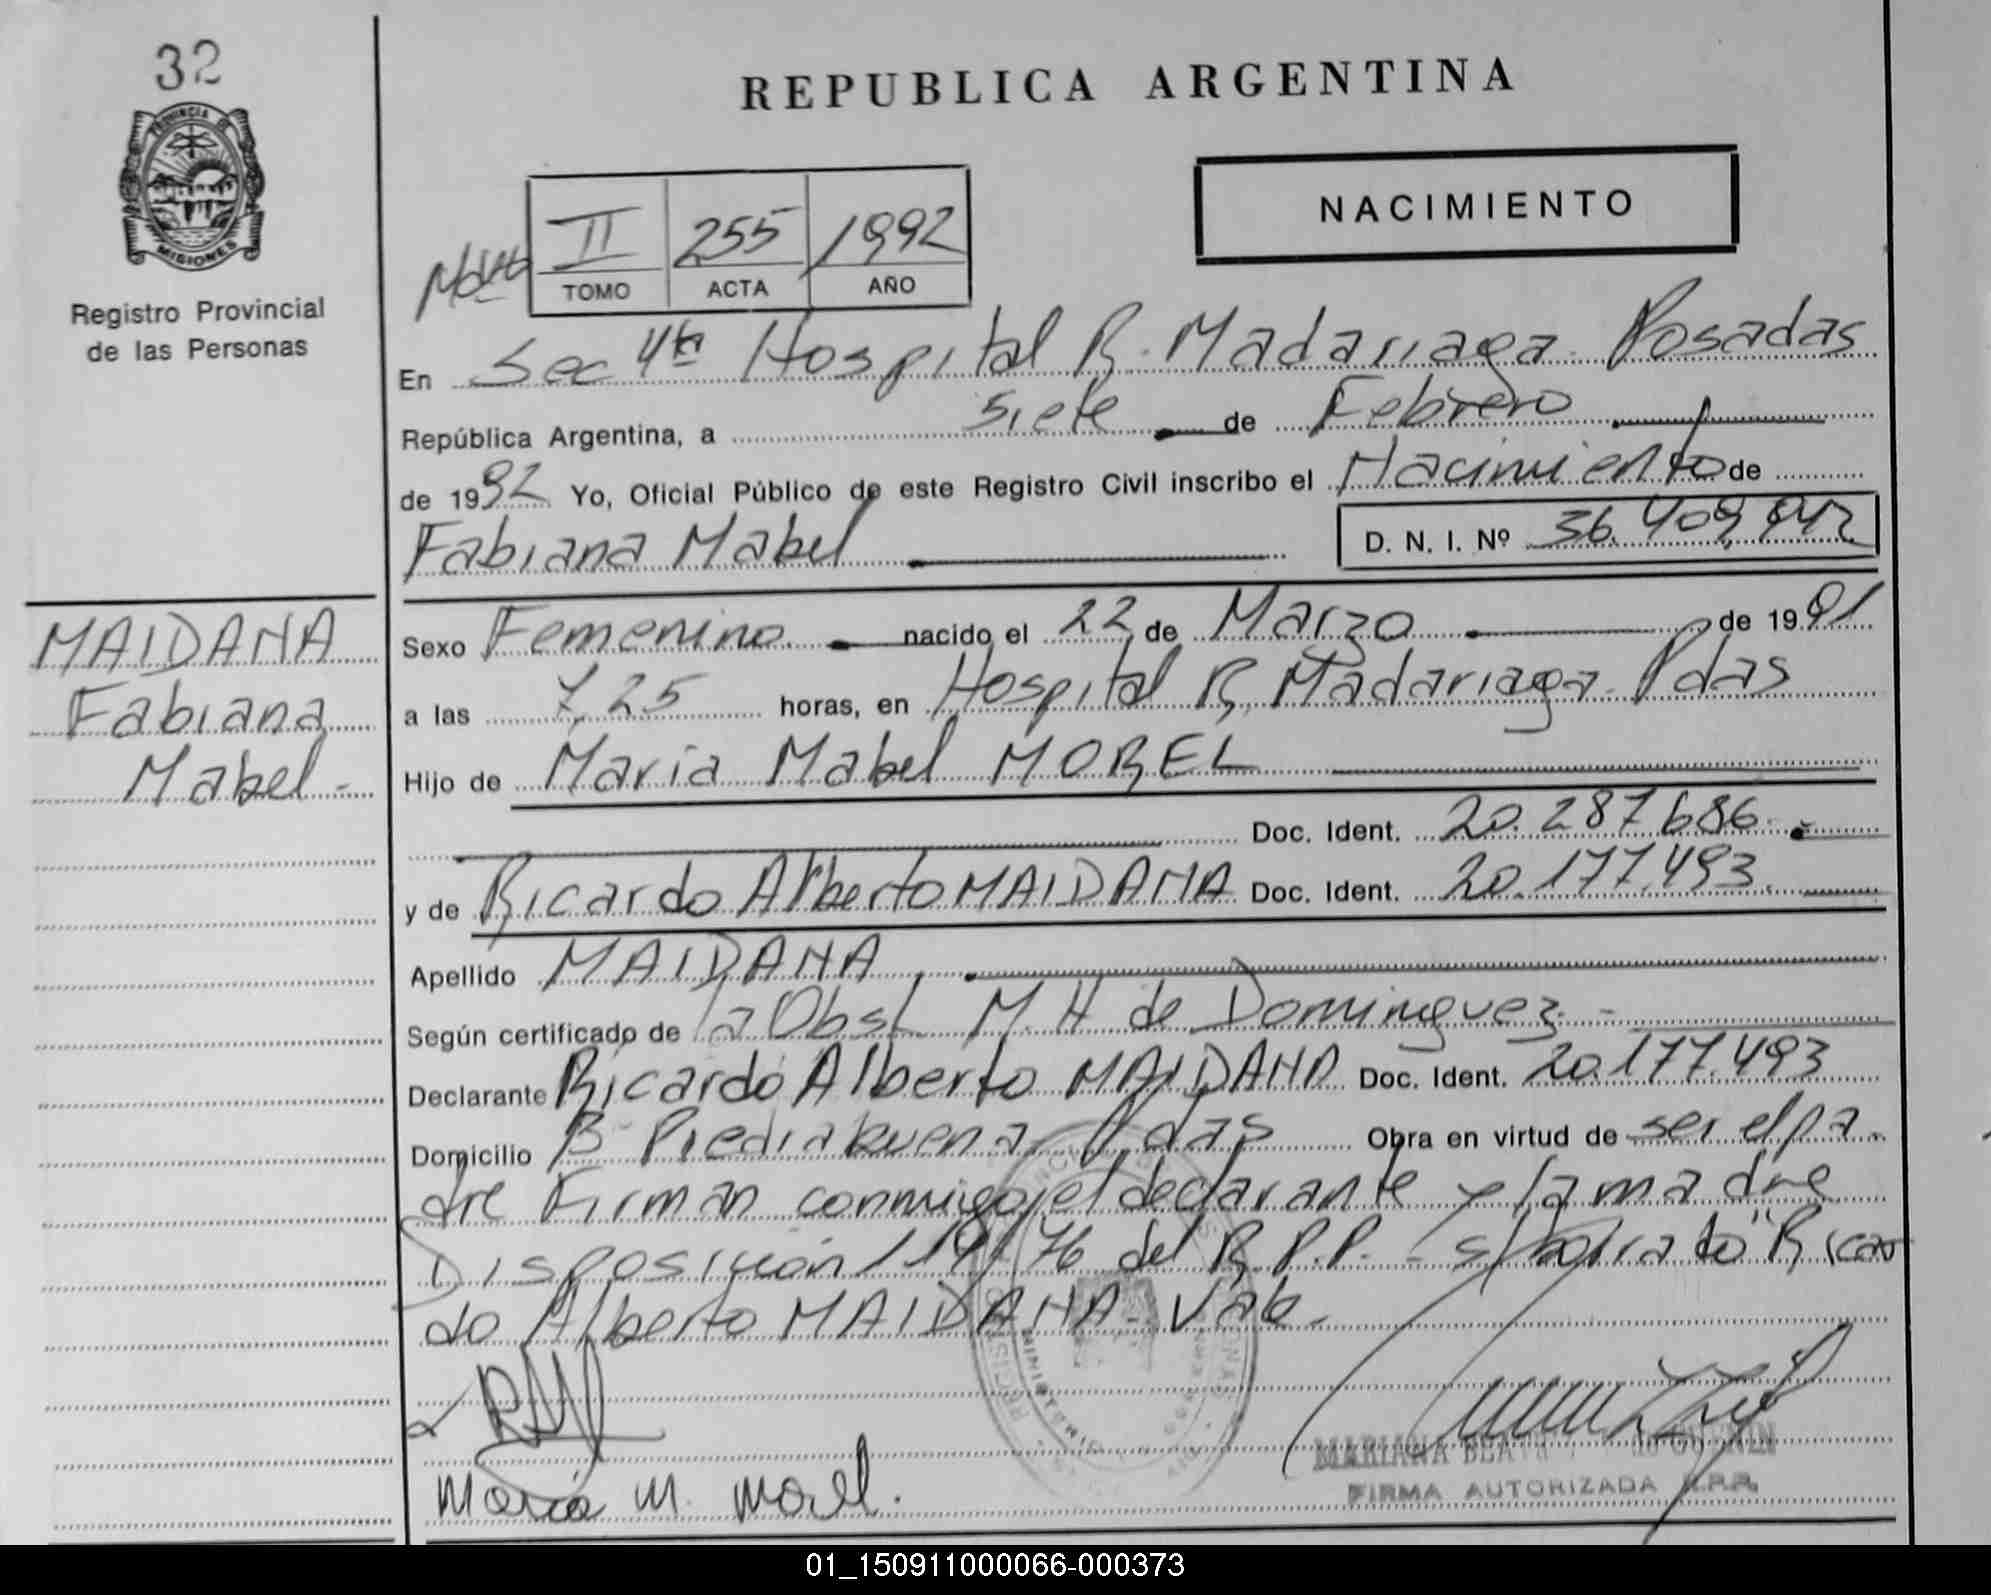 32
PROVINCIA DE
MISIONES
Registro Provincial
de las Personas
MAIDANA
Fabiana
Mabel -
REPUBLICA ARGENTINA
NACIMIENTO
II 255 1992
TOMO ACTA AÑO
En Sec 4ta Hospital R. Madariaga Posadas
República Argentina, a siete de Febrero
de 1992 Yo, Oficial Público de este Registro Civil inscribo el Nacimiento de
Fabiana Mabel
D. N. I. Nº
Sexo Femenino nacido el 22 de Marzo de 1991
a las 7,25 horas, en Hospital R. Madariaga Pdas
Hijo de María Mabel MOREL
Doc. Ident. 20.287.686.
y de Ricardo Alberto MAIDANA Doc. Ident. 20.177.493.
Apellido MAIDANA
Según certificado de la Obst M. H de Dominguez. -
Declarante Ricardo Alberto MAIDANA Doc. Ident. 20.177.493
Domicilio Bº Piedrabuena Pdas Obra en virtud de ser el pa
dre Firman conmigo, el declarante y la madre
Disposición 119/76 del R.P.P. - s/borrado "Ricar
do Alberto MAIDANA- Vale.
María M. Morel.
MARIANA
FIRMA AUTORIZADA R.P.P.
01_150911000066-000373